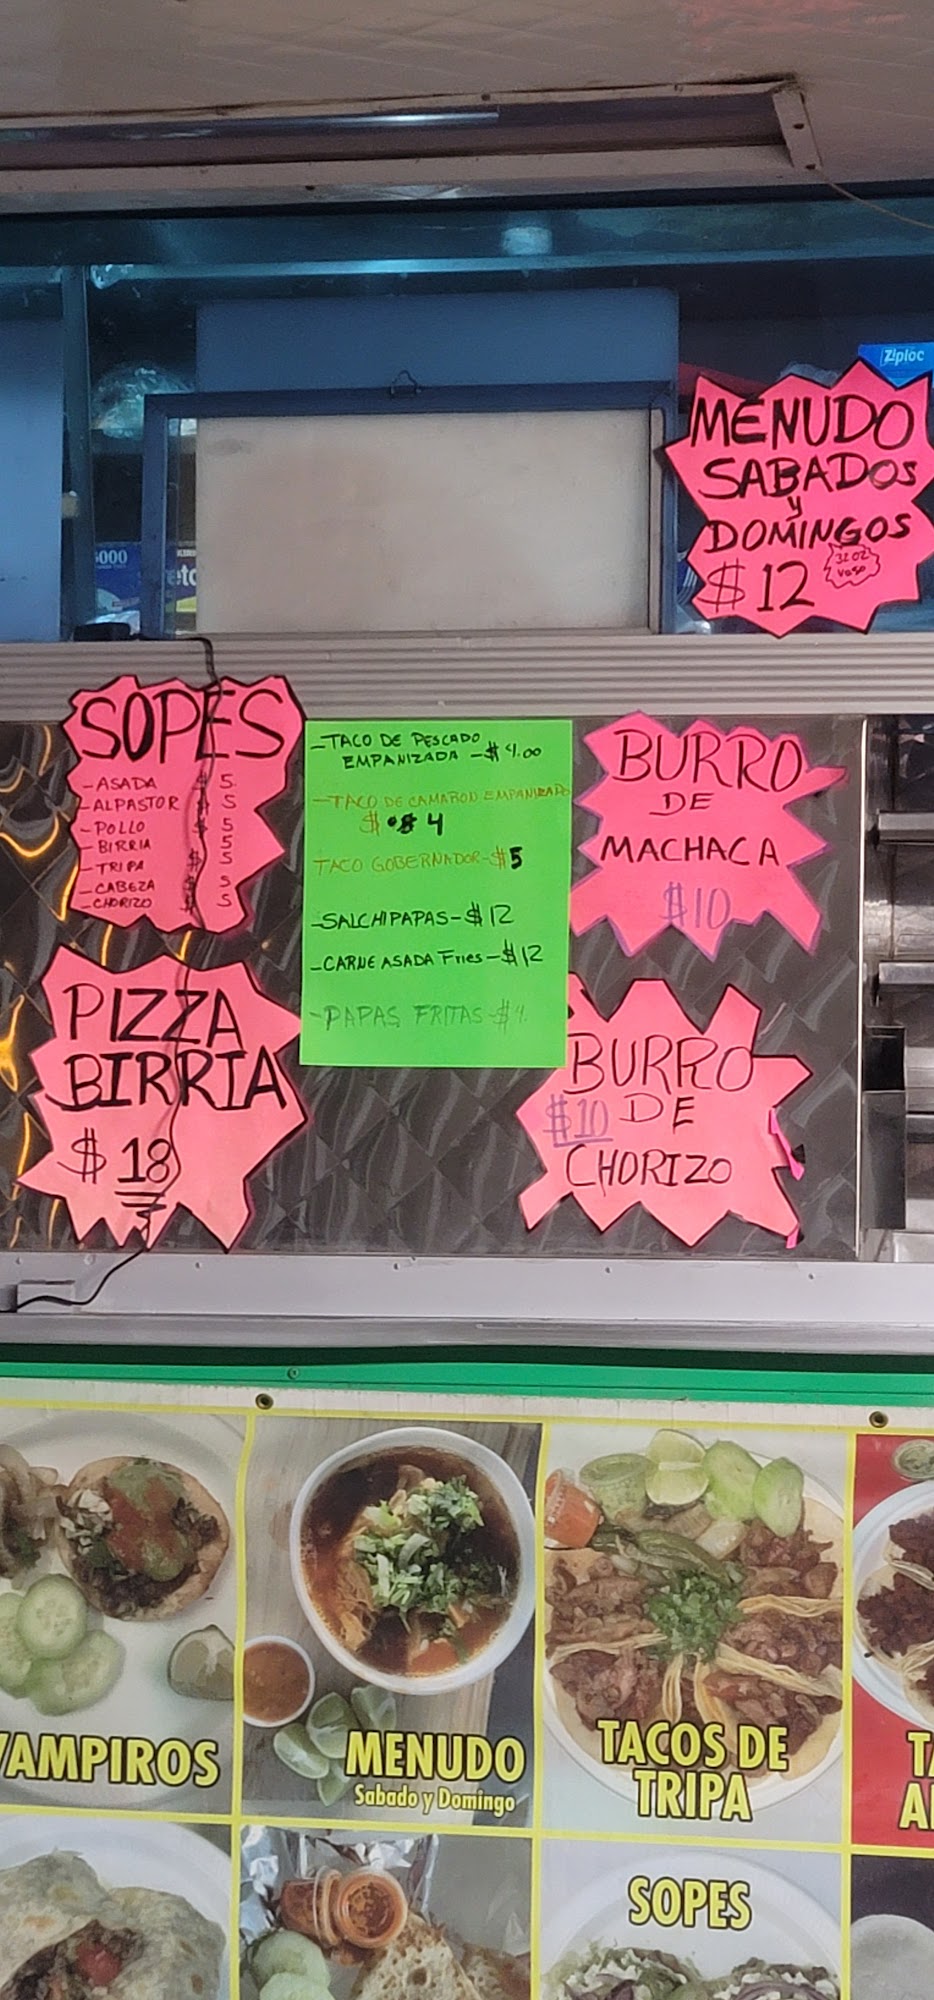 Ziploc
MENUDO
SABADOS
y
DOMINGOS
$12
32 OZ
VASO
SOPES
-ASADA $ 5
-ALPASTOR $ 5
-POLLO $ 5
-BIRRIA 5
-TRIPA $ 5
-CABEZA $ 5
-CHORIZO $ 5
-TACO DE PESCADO
EMPANIZADA -$4.00
-TACO DE CAMARON EMPANIZADO
$ 4
TACO GOBERNADOR-$5
-SALCHIPAPAS-$12
-CARNE ASADA Fries-$12
-PAPAS FRITAS-$4.
BURRO
DE
MACHACA
$10
PIZZA
BIRRIA
$18
BURRO
$10 DE
CHORIZO
VAMPIROS
MENUDO
Sabado y Domingo
TACOS DE
TRIPA
SOPES